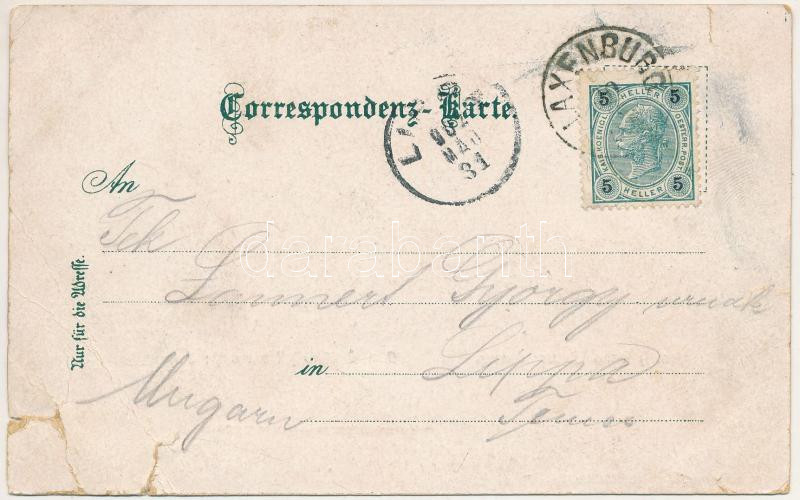 LAXENBURG
5 HELLER 5
KAIS. KOENIGL. OESTERR. POST
5 HELLER 5
Correspondenz-Karte.
MAJ
31
An
Tek
György urnak
in Lippa
Ungarn Temes
Nur für die Adresse.
darabanth